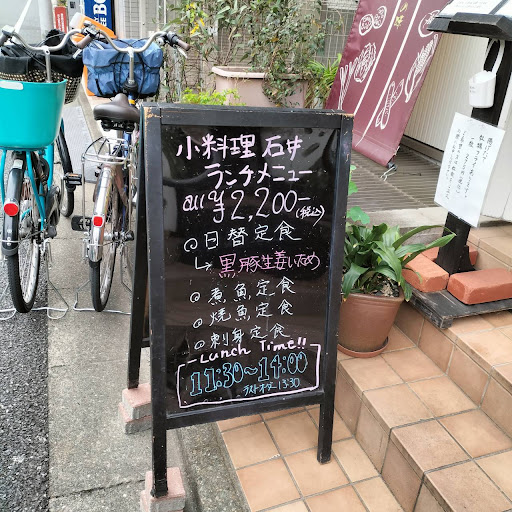 小料理 石井
ランチメニュー
all ¥2,200-(税込)
◎日替定食
↳黒豚生姜いため
◎煮魚定食
◎焼魚定食
◎刺身定食
Lunch Time!!
11:30~14:00
ラストオーダー 13:30